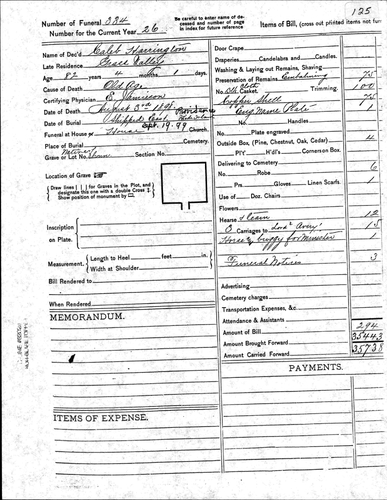 125
Number of Funeral 324
Number for the Current Year 26
Be careful to enter name of deceased and number of page in index for future reference
Items of Bill, (cross out printed items not
Name of Dec'd Caleb Harrington
Late Residence Grace Valley
Age 82 years 4 months 1 days
Cause of Death Old Age
Certifying Physician E. Jamieson
Date of Death August 3rd 1898
Date of Burial Shipped East
Sept. 19. 99
Funeral at House or Home Church.
Place of Burial Cemetery.
Grave or Lot No. Section No.
Location of Grave
Draw lines [ ] for Graves in the Plot, and designate this one with a double Cross
Show position of monument by
Inscription on Plate.
Measurement. Length to Heel feet in.
Width at Shoulder
Bill Rendered to
When Rendered
MEMORANDUM.
ITEMS OF EXPENSE.
Door Crape
Draperies, Candelabra and Candles.
Washing & Laying out Remains, Shaving
Preservation of Remains Embalming 75
No. Casket. Trimming. 100
Copper Shell 75
Eng Name Plate 1
No. Handles
Plate engraved
Outside Box, (Pine, Chestnut, Oak, Cedar) 4
Pr. H'dl's Corners on Box.
Delivering to Cemetery 6
No. Robe
Prs. Gloves Linen Scarfs 1
Use of Doz. Chairs
Flowers
Hearse & team 12
Carriages to 15
Horse & buggy for Minister 1
Funeral Notices 3
Advertising
Cemetery charges
Transportation Expenses, &c
Attendance & Assistants
Amount of Bill 294
Amount Brought Forward 35443
Amount Carried Forward 35738
PAYMENTS.